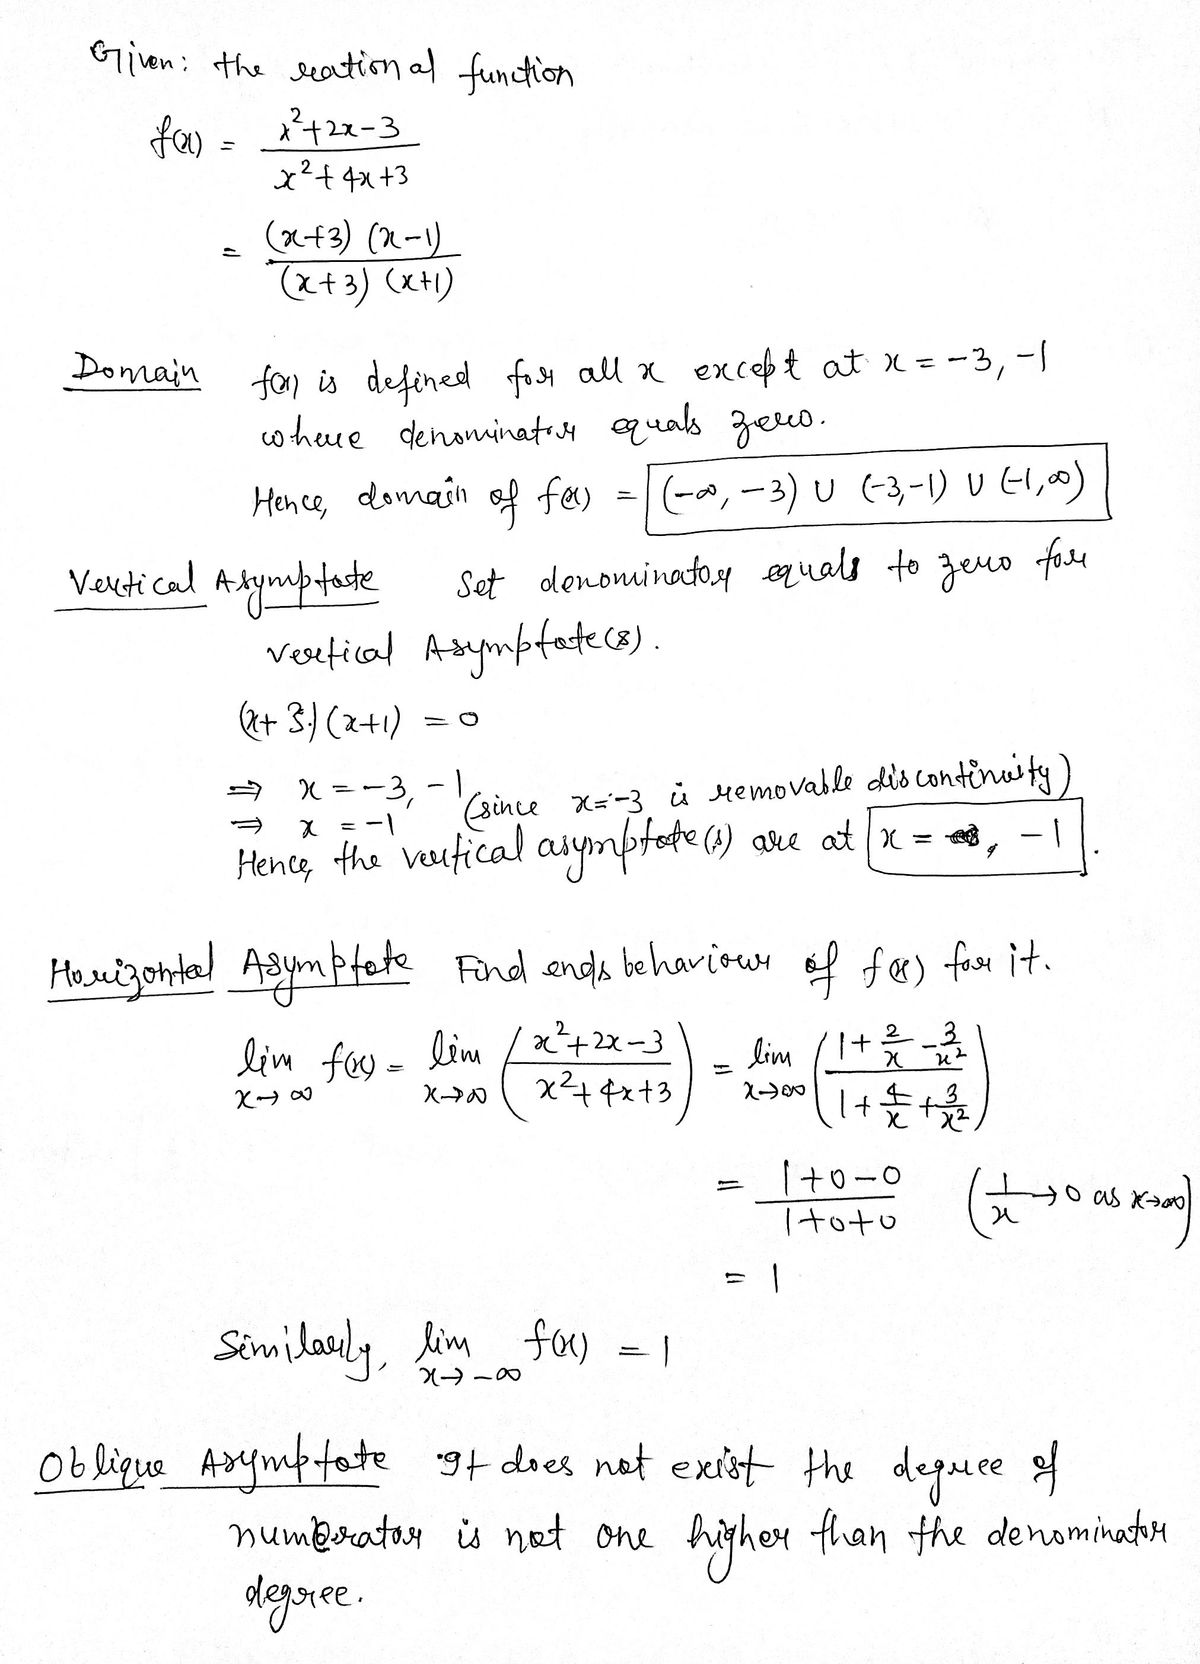 Given: the rational function
f(x) = x²+2x-3 / x²+4x+3
= (x+3) (x-1) / (x+3) (x+1)
Domain f(x) is defined for all x except at x = -3, -1
where denominator equals zero.
Hence, domain of f(x) = (-∞, -3) ∪ (-3,-1) ∪ (-1,∞)
Vertical Asymptote Set denominator equals to zero for
vertical Asymptote(s).
(x+3)(x+1) = 0
⇒ x = -3, -1
⇒ x = -1 (since x=-3 is removable discontinuity)
Hence, the vertical asymptote(s) are at x = , -1.
Horizontal Asymptote Find ends behaviour of f(x) for it.
lim x→∞ f(x) = lim x→∞ (x²+2x-3 / x²+4x+3) = lim x→∞ (1+2/x-3/x² / 1+4/x+3/x²)
= 1+0-0 / 1+0+0 (1/x →0 as x→∞)
= 1
Similarly, lim x→-∞ f(x) = 1
Oblique Asymptote It does not exist the degree of
numerator is not one higher than the denominator
degree.